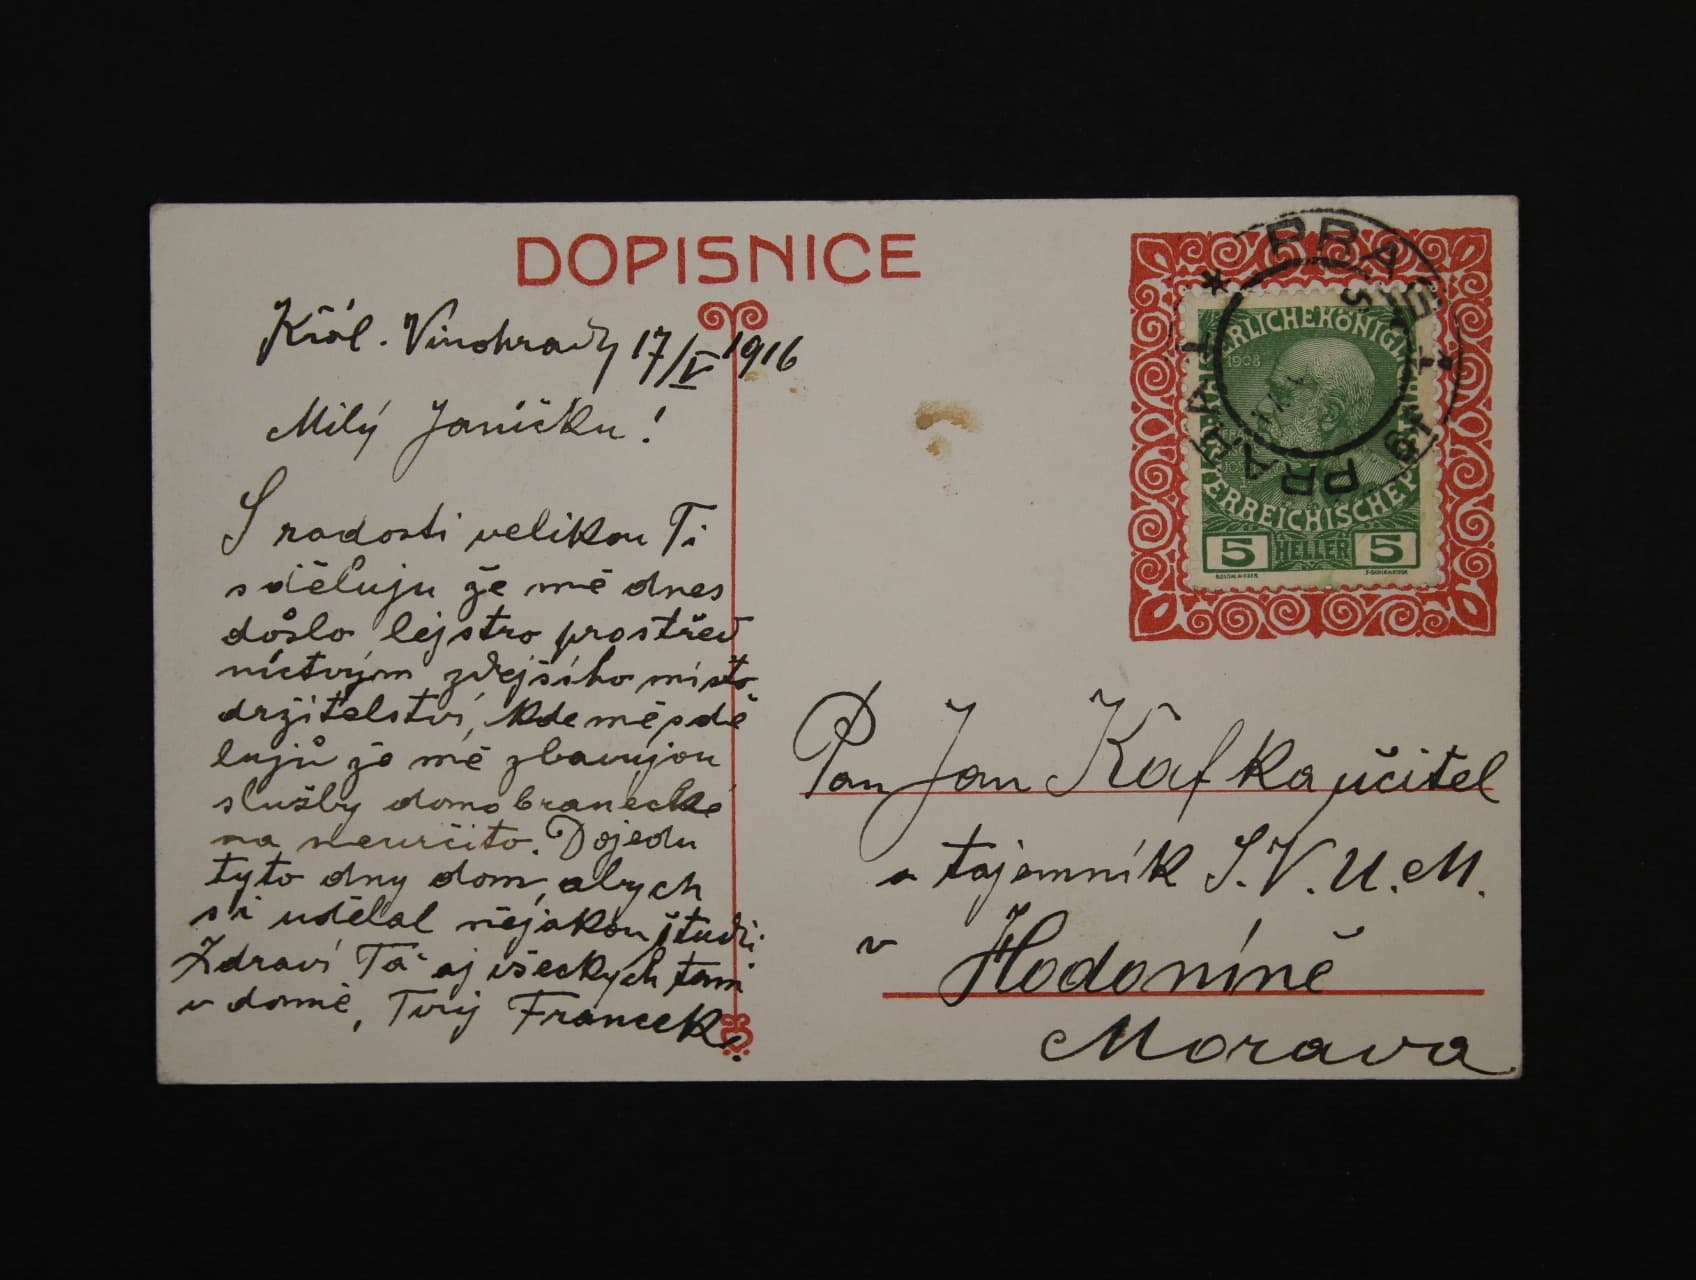 DOPISNICE
Král. Vinohrady 17/V 1916
Milý Janíčku!
S radosti velikou Ti
sděluju že mě dnes
došlo lejstro prostřed
nictvým zdejšího místo
držitelství, kde mě sdě
lujů že mě zbavujou
služby domobranecké
na neurčito. Dojedu
tyto dny dom, abych
si udělal nějakou študii
Zdraví Tě aj všeckých tam
v domě, Tvůj Francek.
PRAG
PRAHA
ERLICHEKÖNIGL
1908
ERREICHISCHEP
5 HELLER 5
Pan Jan Kafka učitel
a tajemník S.V.U.M.
v Hodoníně
Morava